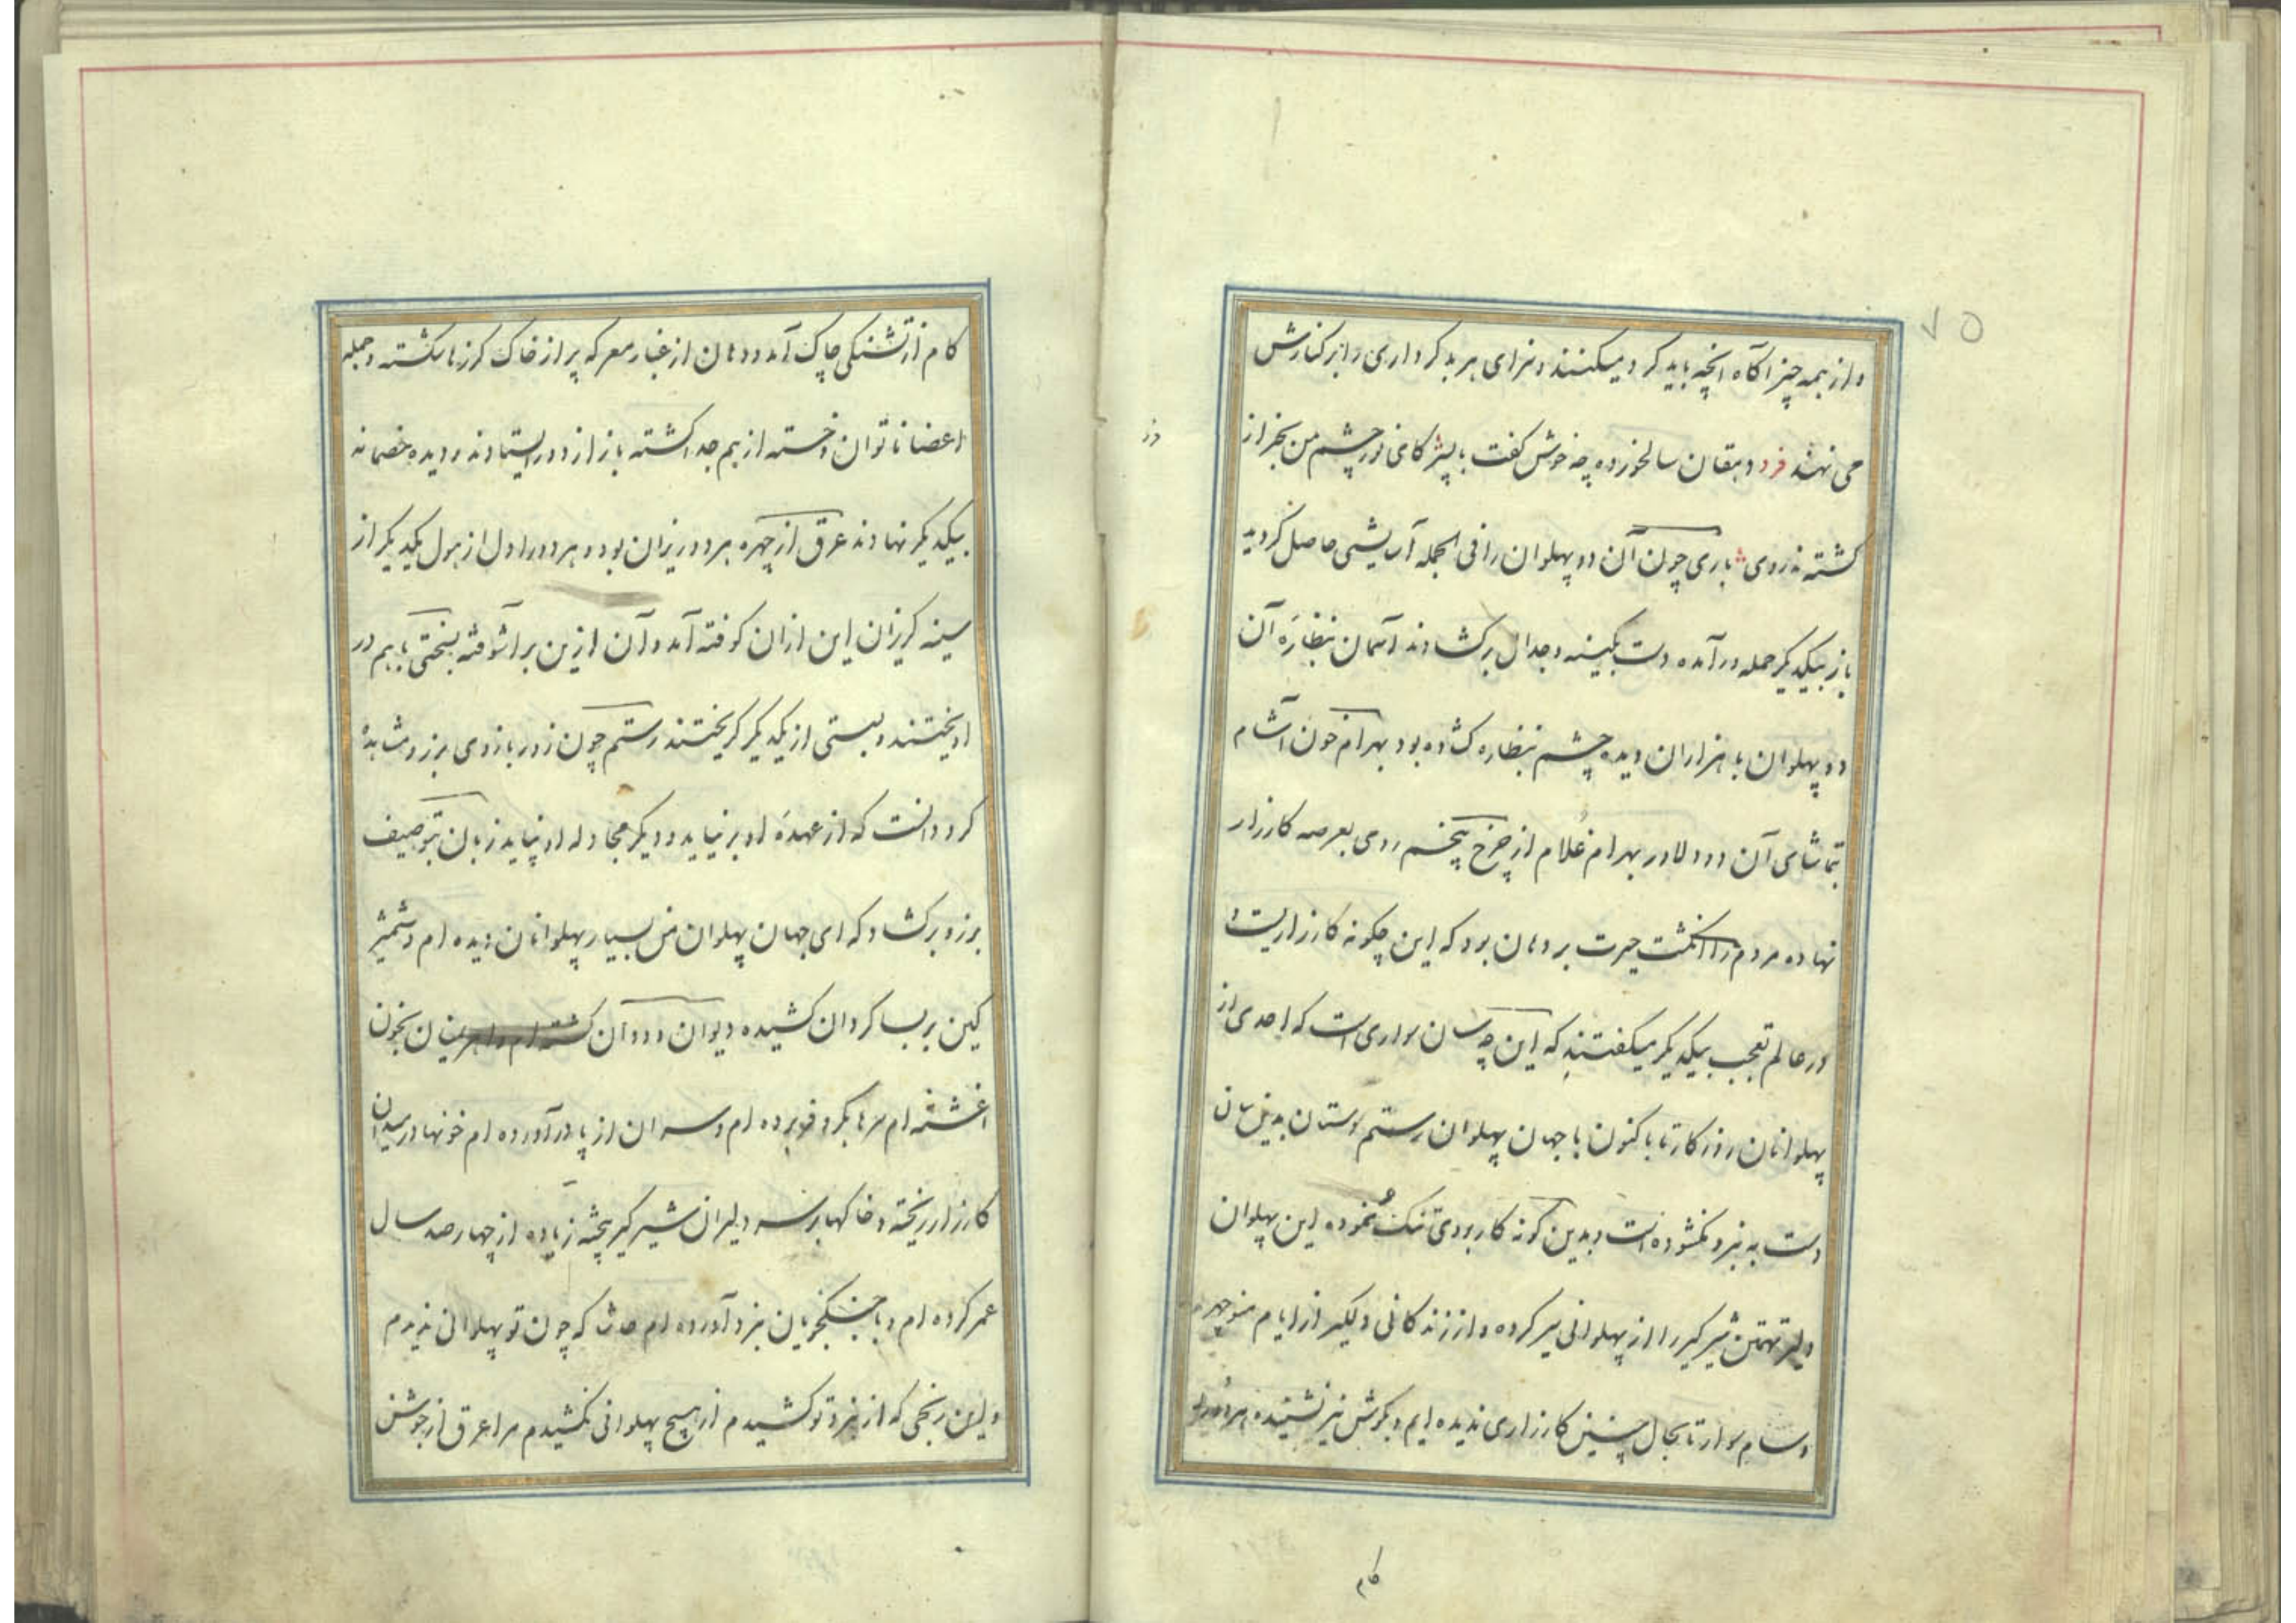 ۷۵
و از همه چیز آگاه انچه باید کرد میکنند و سزای هر بد کرداری را بر کنارش
می نهند فرد دهقان سالخورده چه خوش گفت با پسر کای نور چشم من بجز از
کشته ندروی باری چون آن دو پهلوان را فی الجمله آسایشی حاصل کردید
باز بیکدیکر حمله در آمده دست بکینه و جدال برکشادند آسمان بنظاره آن
دو پهلوان با هزاران دیده چشم بنظاره کشاده بود بهرام خون آشام
بتماشای آن دو دلاور بهرام غلام از چرخ پنجم روی بعرصه کارزار
نهاده مردم را انکشت حیرت بر دهان بود که این چکونه کارزاریست و
در عالم تعجب بیکدیکر میکفتند که این چه سان سواری است که احدی از
پهلوانان روزکار تا باکنون با جهان پهلوان رستم دستان بدینسان
دست به نبرد نکشوده است و بدین کونه کار بر وی تنک ننموده این پهلوان
دلیر تهمتن شیرکیر را از پهلوانی سیر کرده و از زندکانی دلکیر از ایام منوچهر
و سام سوار تا بحال چنین کارزاری ندیده ایم و بکوش نیز نشنیده هر دو را
کام
کام از تشنکی چاک آمد و دهان از غبار معرکه پر از خاک کرزها شکسته و جمله
اعضا ناتوان و خسته از هم جدا کشته باز از دور ایستادند و دیده خصمانه
بیکدیکر نهادند عرق از چهره هر دو ریزان بود و هر دو را دل از هول یکدیکر از
سینه کریزان این از آن کوفته آمد و آن ازین بر آشوفته بسختی با هم در
اویختند و بسستی از یکدیکر کریختند رستم چون زور بازوی برزو مشاهده
کرد دانست که از عهده او بر نیاید و دیکر مجادله او نپاید زبان بتوصیف
برزو برکشاد که ای جهان پهلوان من بسیار پهلوانان دیده ام و شمشیر
کین بر بسا کردان کشیده دیوان و ددان کشته ام و اهرمنان بخون
اغشته ام سرها بکرد فرو برده ام و سران از پا در آورده ام خونها در میدان
کارزار ریخته و خاکها بر سر دلیران شیرکیر بیخته زیاده از چهار صد سال
عمر کرده ام و با جنکجویان نبرد آورده ام حاشا که چون تو پهلوانی ندیدم
و این رنجی که از نبرد تو کشیدم از هیچ پهلوانی نکشیدم مرا عرق از جوشن